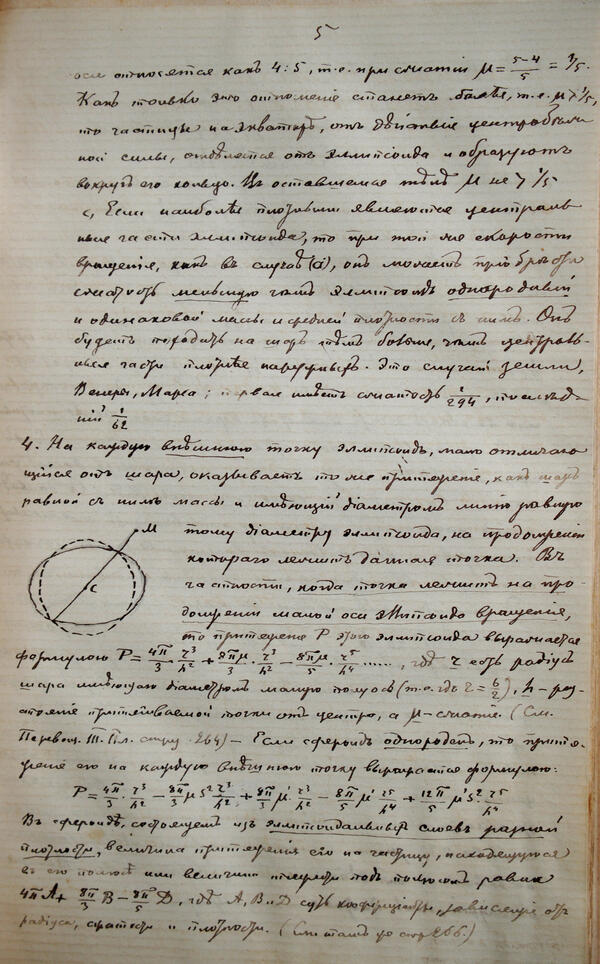 5
оси относятся какъ 4:5, т.е. при сжатіи μ = 5-4/5 = 1/5.
Какъ только это отношеніе станетъ болѣе, т.е. μ > 1/5,
то частицы на экваторѣ, отъ дѣйствія центробѣж
ной силы, отдѣлятся отъ эллипсоида и образуютъ
вокругъ его кольцо. Въ оставшемся тѣлѣ μ не > 1/5
с, Если наиболѣе плотными являются централь
ныя части эллипсоида, то при той же скорости
вращенія, какъ въ случаѣ (а), онъ можетъ пріобрѣсти
сжатость меньшую чѣмъ эллипсоидъ однородный
и одинаковой массы и средней плотности съ нимъ. Онъ
будетъ походить на шаръ тѣмъ больше, чѣмъ централь
ныя части плотнѣе наружныхъ. Это случай земли,
Венеры, Марса; первая имѣетъ сжатость 1/294, послѣд
ній 1/62
4. На каждую внѣшнюю точку эллипсоидъ, мало отличаю
щійся отъ шара, оказываетъ то же притяженіе, какъ шаръ
равной съ нимъ массы и имѣющій діаметромъ линію равную
М
тому діаметру эллипсоида, на продолженіи
котораго лежитъ данная точка. Въ
частности, когда точка лежитъ на про-
с
долженіи малой оси эллипсоида вращенія,
то притяженіе P этого эллипсоида выражается
формулою P = 4π/3 · r³/h² + 8πμ/3 · r³/h² − 8πμ/5 · r⁵/h⁴ ....., гдѣ r есть радіусъ
шара имѣющаго діаметромъ малую полуось (т.е. гдѣ r = 6/2), h - раз
стояніе притягиваемой точки отъ центра, а μ - сжатіе. (См.
III. стр. 264) - Если сфероидъ однороденъ, то притя-
женіе его на каждую внѣшнюю точку выражается формулою:
P = 4π/3 · r³/h² − 8π/3 μ's² r³/h² + 8π/3 μ' r³/h² − 8π/5 μ' r⁵/h⁴ + 12π/5 μ's² r⁵/h⁴
Въ сфероидѣ, состоящемъ изъ эллипсоидальныхъ слоевъ разной
плотности, величина притяженія его на частицу, находящуюся
въ его полюсѣ или величина тяжести подъ полюсомъ равна
4π A + 8π/3 B − 8π/5 D, гдѣ A, B и D суть коэффиціенты, зависящіе отъ
радіуса, сжатости и плотности. (См. тамъ же стр. 266.)